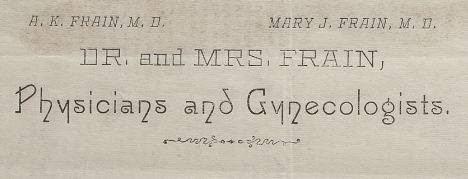 A. K. FRAIN, M. D. MARY J. FRAIN, M. D.
DR. and MRS. FRAIN,
Physicians and Gynecologists.